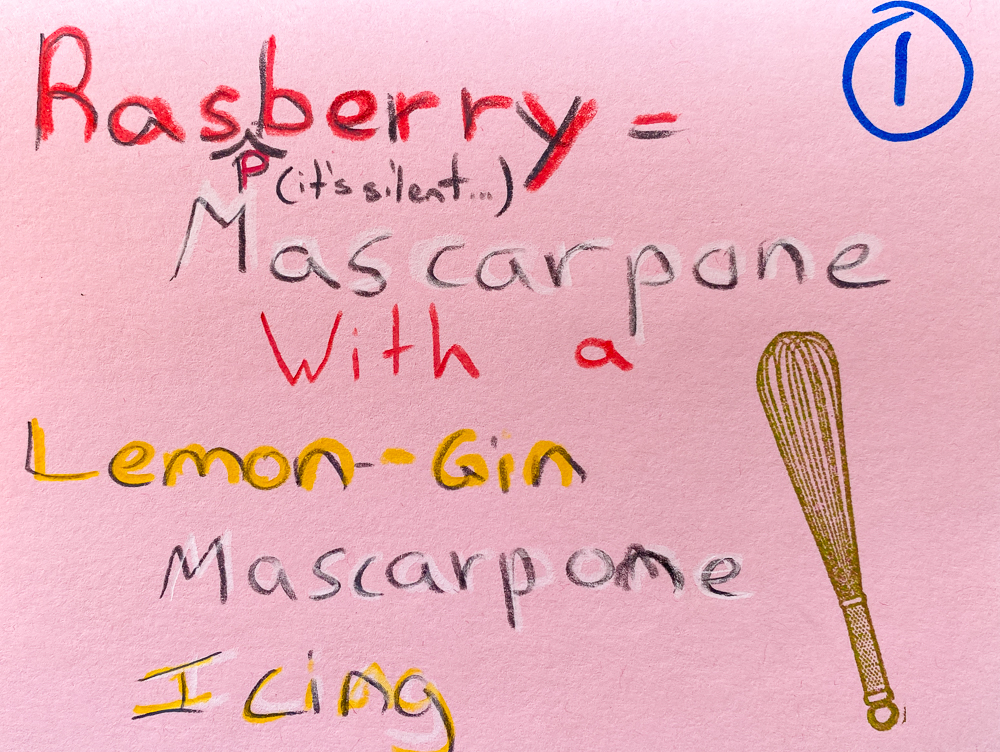 Rasberry -
p (it's silent...)
1
Mascarpone
With a
Lemon-Gin
Mascarpone
Icing